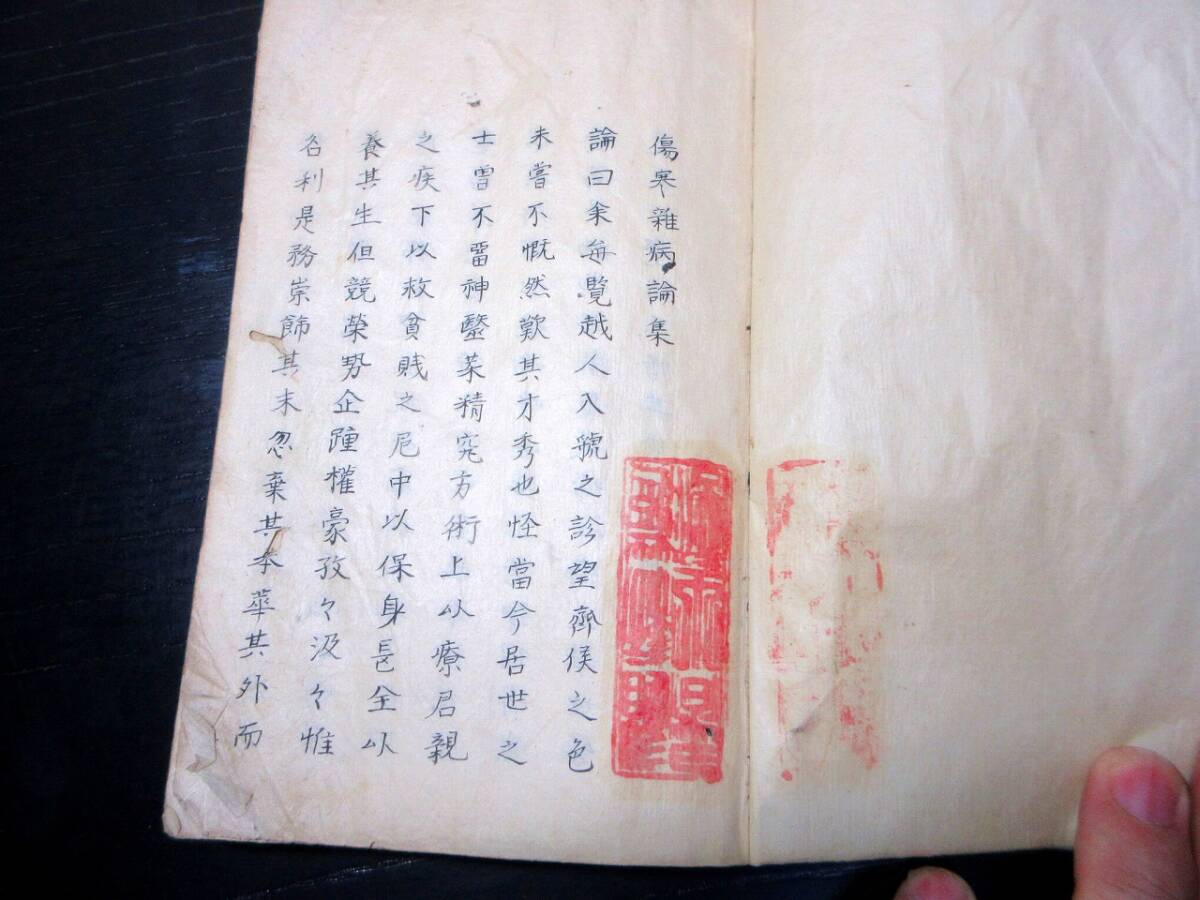 傷寒雜病論集
論曰余每覽越人入虢之診望齊侯之色
未嘗不慨然歎其才秀也怪當今居世之
士曾不畱神醫藥精究方術上以療君親
之疾下以救貧賎之厄中以保身長全以
養其生但競榮勢企踵權豪孜々汲々惟
名利是務崇飾其末忽棄其本華其外而